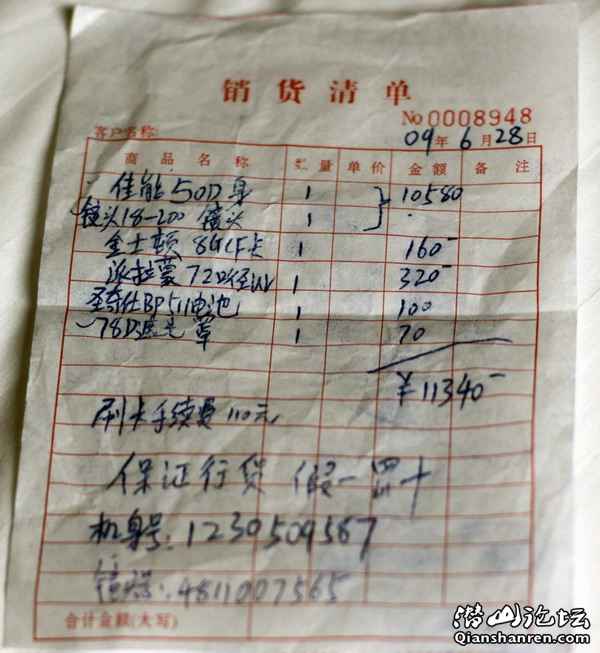 销货清单
No 0008948
客户名称:
09年 6月 28日
商品名称 数量 单价 金额 备注
佳能50D身 1 10580
镜头18-200 镜头 1
金士顿 8GCF卡 1 160-
派拉蒙 72口径UV 1 320-
BP511电池 1 100
78D遮光罩 1 70
¥11340-
刷卡手续费 110元
保证行货 假一罚十
机身号: 1230509587
镜号: 4811007565
合计金额(大写)
潜山论坛
Qianshanren.com